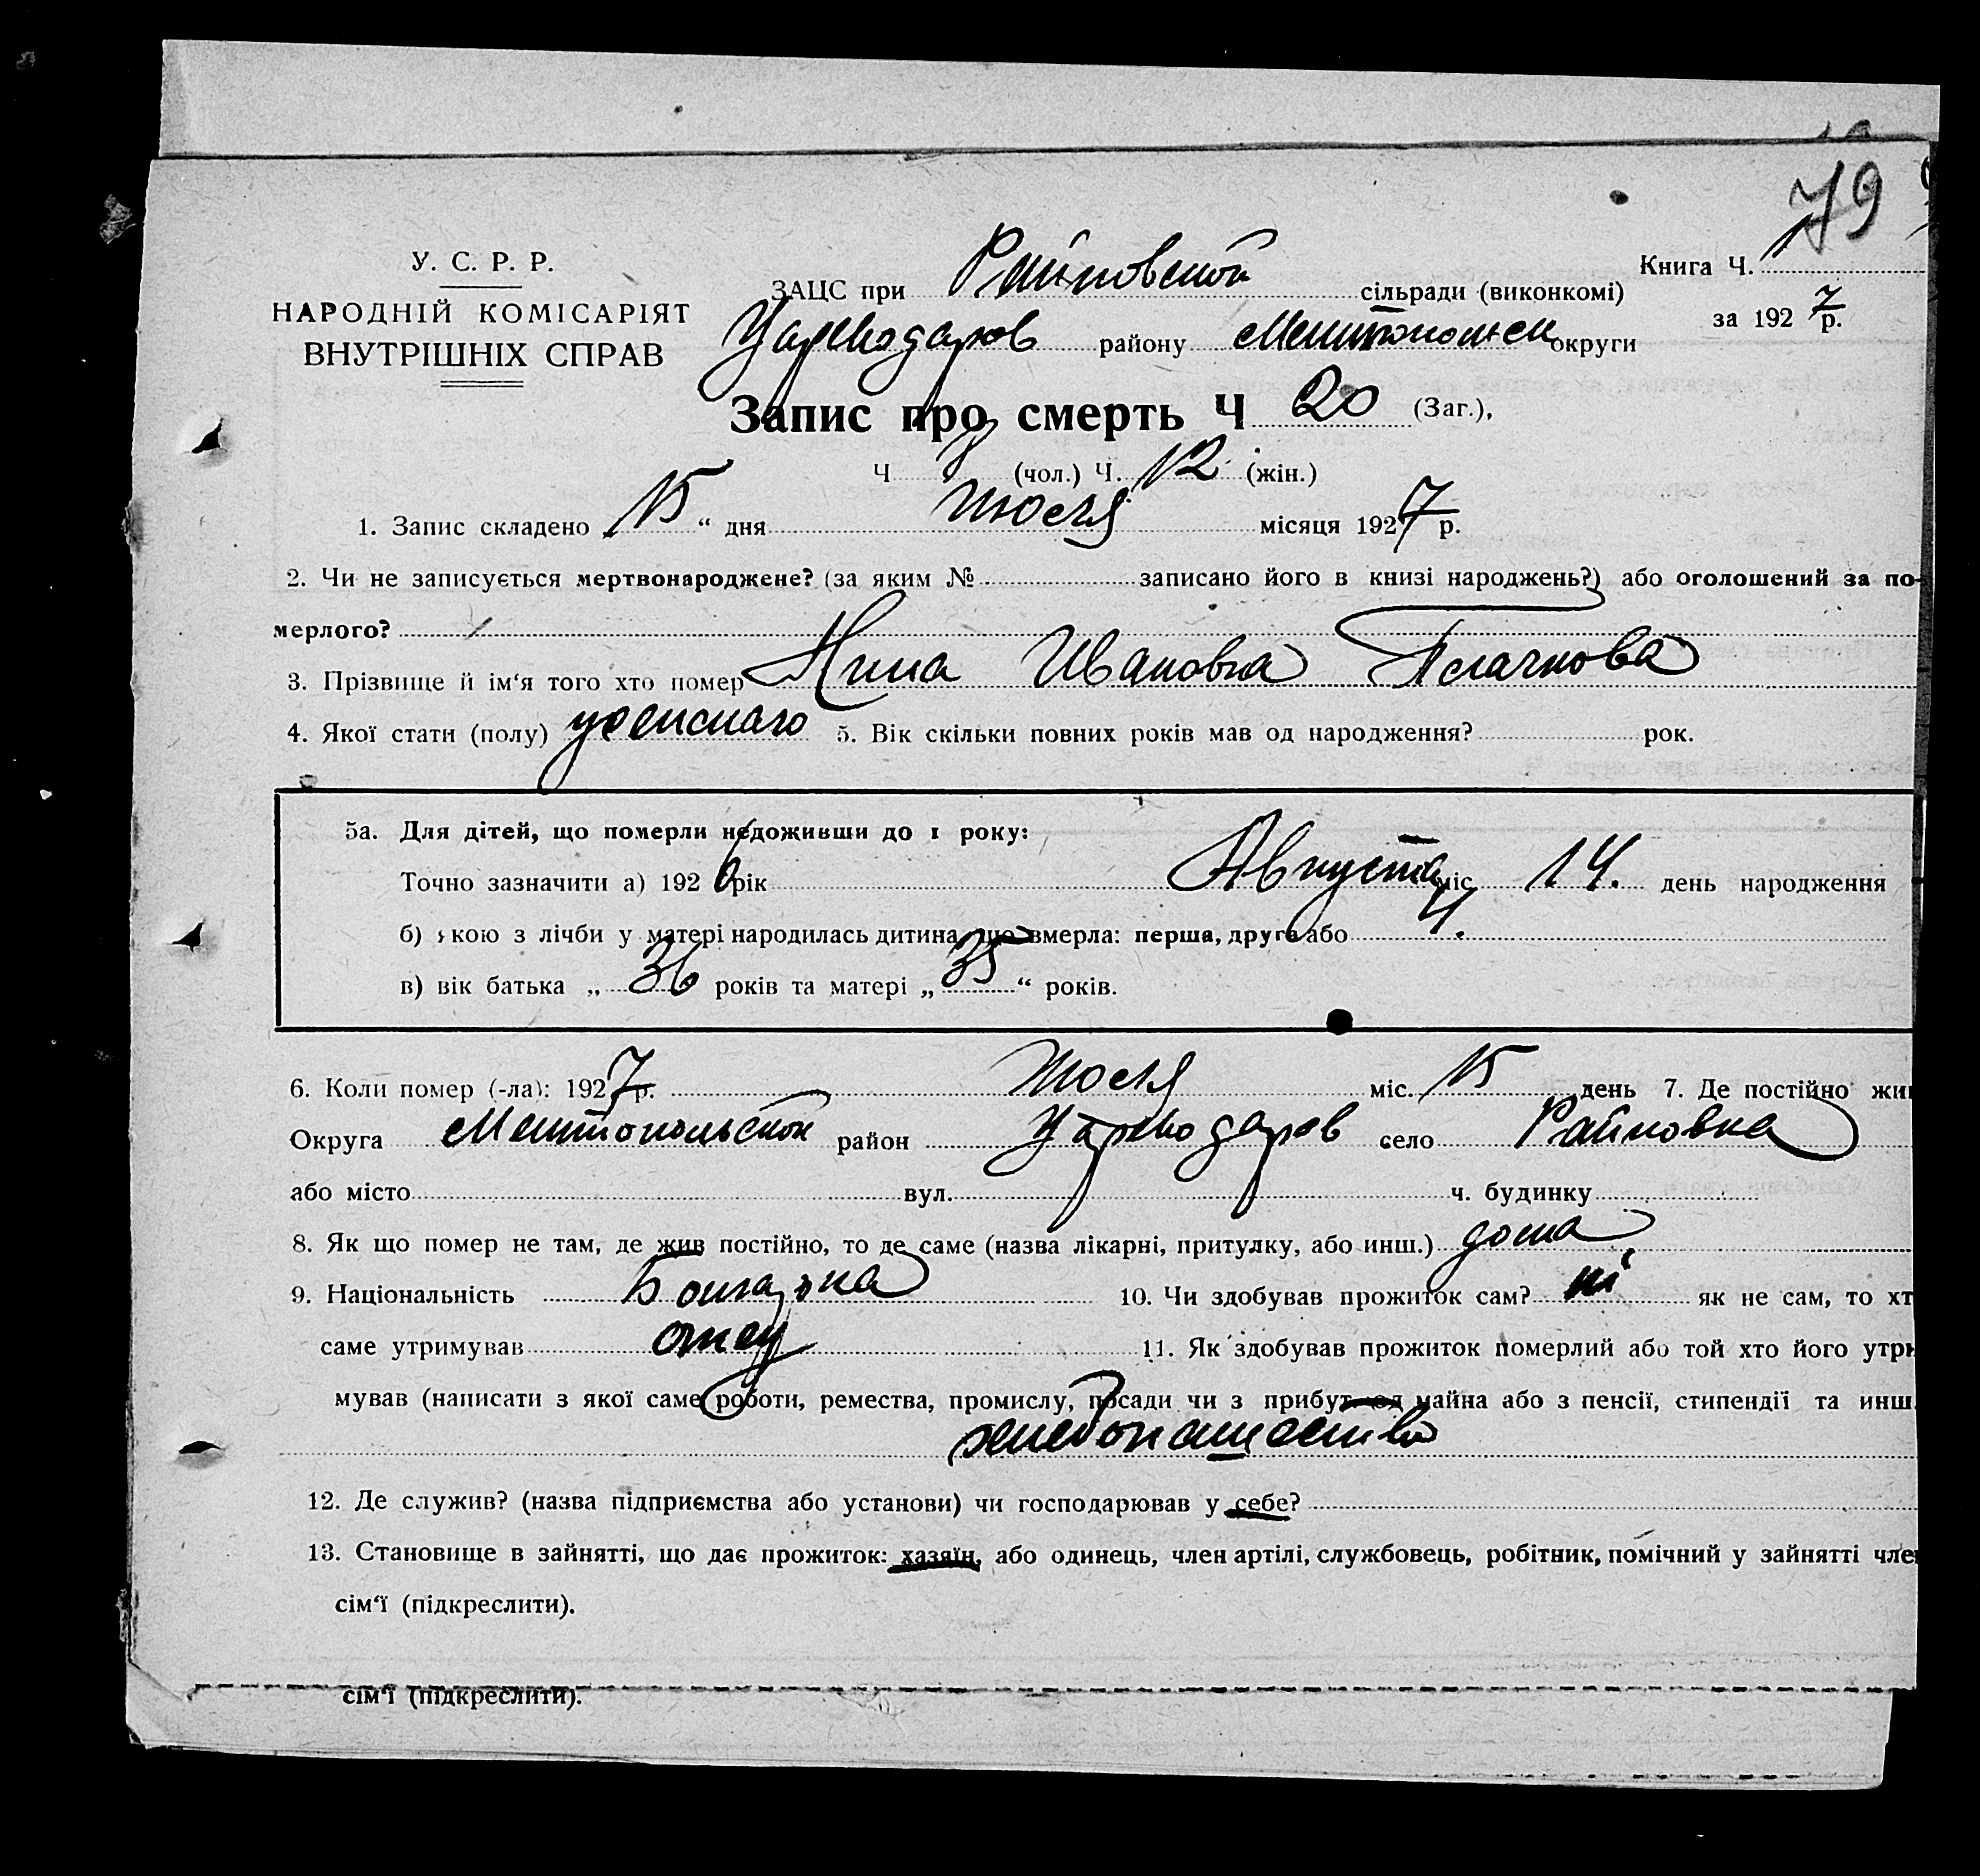 79
У. С. Р. Р.
НАРОДНІЙ КОМІСАРІЯТ
ВНУТРІШНІХ СПРАВ
Книга Ч. 1
за 1927 р.
ЗАЦС при Райновской сільради (виконкомі)
району округи
Запис про смерть Ч 20 (Заг.),
Ч 8 (чол.) Ч. 12 (жін.)
1. Запис складено 15 “ дня Июля місяця 1927 р.
2. Чи не записується мертвонароджене? (за яким № записано його в книзі народжень?) або оголошений за по-
мерлого?
3. Прізвище й ім‘я того хто помер Нина Ивановна Плачкова
4. Якої стати (полу) женскаго 5. Вік скільки повних років мав од народження? рок.
5а. Для дітей, що померли недоживши до 1 року:
Точно зазначити а) 1926 рік Августа міс 14. день народження
б) якою з лічби у матері народилась дитина, що вмерла: перша, друга або 4.
в) вік батька „ 36 років та матері „ 35 “ років.
6. Коли помер (-ла): 1927 р. Июля міс. 15 день 7. Де постійно жи
Округа Мелитопольской район Цареводаров село Райновка
або місто вул. ч. будинку
8. Як що помер не там, де жив постійно, то де саме (назва лікарні, притулку, або инш.) дома
9. Національність Болгарка 10. Чи здобував прожиток сам? ні як не сам, то хт
саме утримував отец 11. Як здобував прожиток померлий або той хто його утри
мував (написати з якої саме роботи, ремества, промислу, посади чи з прибут. од майна або з пенсії, стипендії та инш.
хлебопашество
12. Де служив? (назва підприємства або установи) чи господарював у себе?
13. Становище в зайнятті, що дає прожиток: хазяїн, або одинець, член артілі, службовець, робітник, помічний у зайнятті чле
сім‘ї (підкреслити).
сім‘ї (підкреслити).